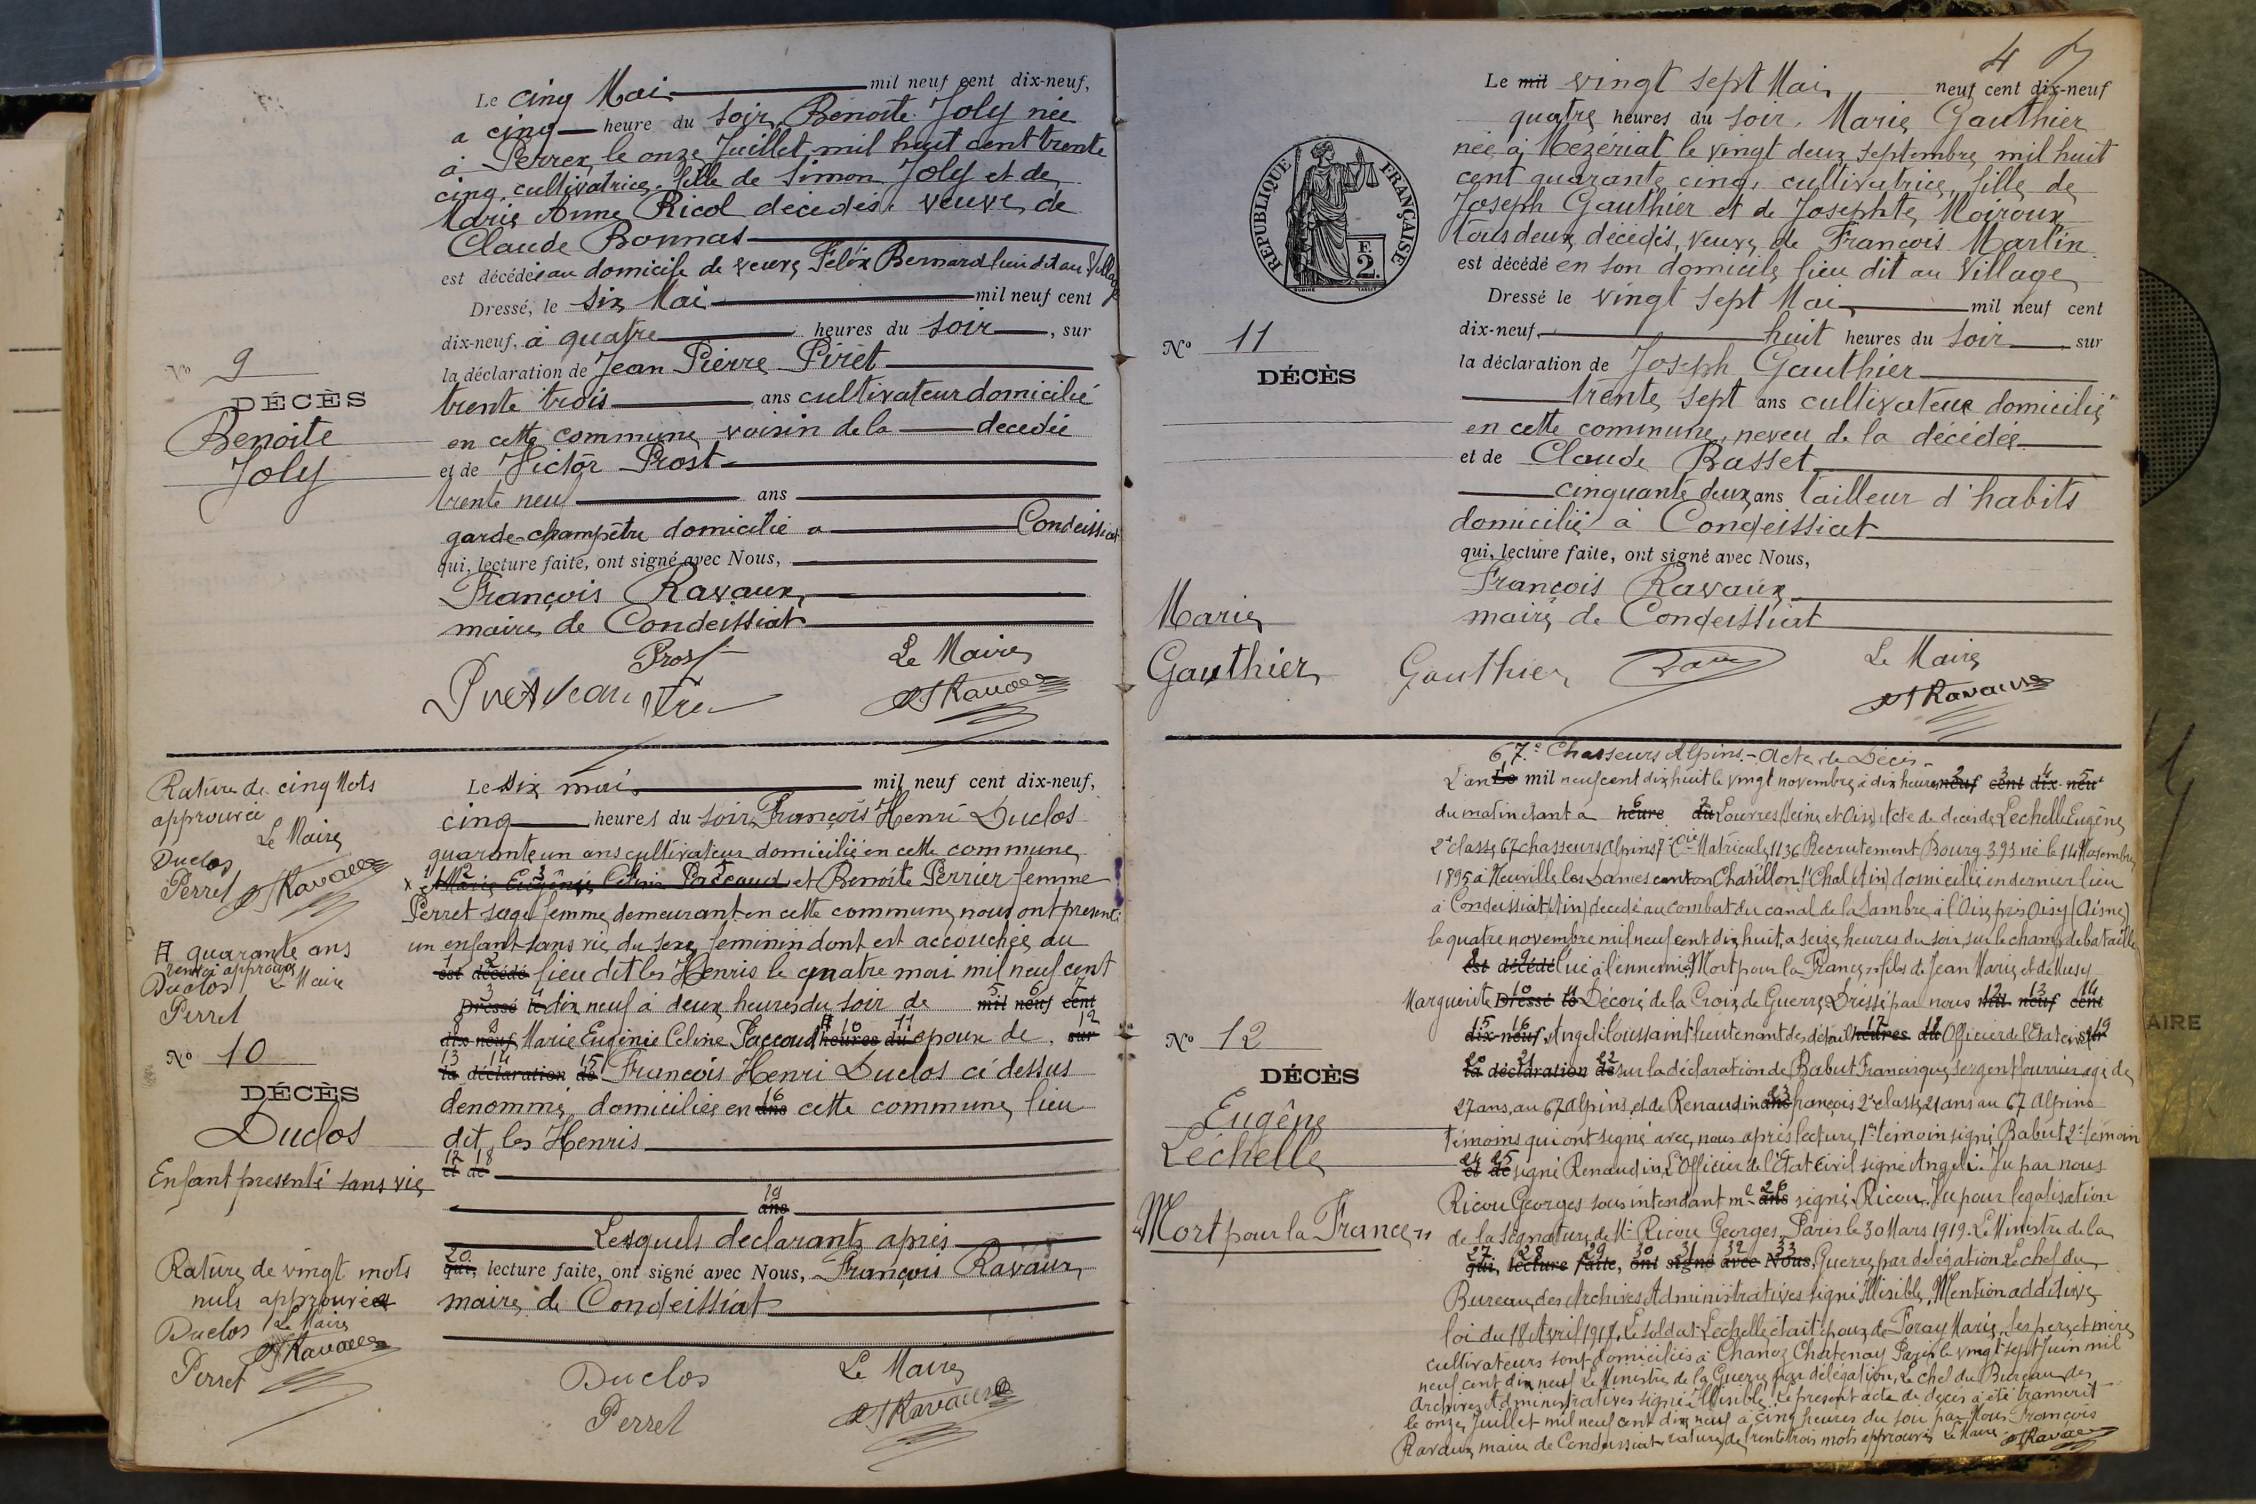 Le cinq Mai mil neuf cent dix-neuf,
a cinq heure du soir Benoite Joly née
à Perrex, le onze Juillet mil huit cent trente
cinq, cultivatrice, fille de Simon Joly et de
Marie Anne Ricol décedés. veuve de
Claude Bonnat
est décédée au domicile de veuve Félix Bernard lieu dit au Village
Dressé, le six Mai mil neuf cent
dix-neuf, à quatre heures du soir, sur
la déclaration de Jean Pierre Piret
trente trois ans cultivateur domicilié
en cette commune voisin de la decedée
et de Victor Prost
trente neuf ans
garde-champêtre domicilié a Condeissiat
qui, lecture faite, ont signé avec Nous,
François Ravaux
maire de Condeissiat
Prost Le Maire
Ravaux
No 9
DÉCÈS
Benoite
Joly
Rature de cinq Mots
approuvée
Le Maire
Duclos
Perret Ravaux
quarante ans
renvoi approuvé
Duclos Le Maire
Perret
No 10
DÉCÈS
Duclos
Enfant presenté sans vie
Rature de vingt mots
nuls approuvée
Duclos Le Maire
Ravaux
Perret
Le six mai mil neuf cent dix-neuf,
cinq heures du soir François Henri Duclos
quarante un ans cultivateur domicilié en cette commune
x et Marie Eugénie Celine Paccaud et Benoite Perrier femme
Perret sage femme demeurant en cette commune nous ont presenté
un enfant sans vie du sexe feminin dont est accouchée au
est décédé lieu dit les Henris le quatre mai mil neuf cent
Dressé le dix neuf à deux heures du soir de mil neuf cent
dix neuf Marie Eugénie Celine Paccaud heures du epoux de sur
la déclaration de François Henri Duclos ci dessus
denommé, domiciliés en ans cette commune lieu
dit les Henris
et de
ans
Lesquels declarants après
qui, lecture faite, ont signé avec Nous, François Ravaux
maire de Condeissiat
Duclos Le Maire
Perret Ravaux
4
Le mil vingt sept Mai neuf cent dix-neuf
quatre heures du soir, Marie Gauthier
née à Mezériat le vingt deux septembre mil huit
cent quarante cinq, cultivatrice, fille de
Joseph Gauthier et de Josephte Moiroux
tous deux décédés, veuve de François Martin
est décédé en son domicile lieu dit au Village
Dressé le vingt sept Mai mil neuf cent
dix-neuf, huit heures du soir, sur
la déclaration de Joseph Gauthier
trente sept ans cultivateur domicilié
en cette commune, neveu de la décédée
et de Claude Basset
cinquante deux ans tailleur d'habits
domicilié à Condeissiat
qui, lecture faite, ont signé avec Nous,
François Ravaux
maire de Condeissiat
Gauthier Le Maire
Ravaux
RÉPUBLIQUE FRANÇAISE
E
2.
No 11
DÉCÈS
Marie
Gauthier
No 12
DÉCÈS
Eugêne
Léchelle
"Mort pour la France"
67e Chasseurs Alpins - Acte de Décès -
L'an Le mil neuf cent dix huit le vingt novembre à dix heures neuf cent dix-neuf
du matin étant a heure du Louvres (Seine et Oise) Acte de décès de Lechelle Eugêne
2e classe 67 chasseurs alpins 8e Cie Matricule 1136 Recrutement Bourg 393 né le 14 Novembre
1895 à Neuville les Dames canton Chatillon s/ Chal (Ain) domicilié en dernier lieu
à Condeissiat (Ain) decedé au combat du canal de la Sambre à l'Oise près Oisy (Aisne)
le quatre novembre mil neuf cent dix huit, a seize heures du soir, sur le champ de bataille
est décédé tué à l'ennemi "Mort pour la France" fils de Jean Marie et de Musy
Marguerite Dressé le Décoré de la Croix de Guerre Dréssé par nous mil neuf cent
dix-neuf, Angeli Toussaint lieutenant des détails heures du Officier de l'Etat civil sur
la déclaration de sur la déclaration de Babut Francisque sergent fourrier agé de
27 ans, au 67 Alpins, et de Renaudin ans françois 2e classe 21 ans au 67 Alpins
témoins qui ont signé avec nous après lecture, 1er témoin signé Babut 2e témoin
et de signé Renaudin, L'Officier de l'État Civil signé Angeli. Vu par nous
Ricou Georges sous intendant me ans signé Ricou. Vu pour legalisation
de la signature de Mr Ricou Georges. Paris le 30 Mars 1919. Le Ministre de la
qui, lecture faite, ont signé avec Nous, Guerre par delégation Le chef du
Bureau des Archives Administratives signé Illisible. Mention additive
loi du 18 Avril 1918. Le soldat Lechelle était époux de Poray Marie, ses père et mère
cultivateurs sont domiciliés à Chanoz Chatenay Paris le vingt sept Juin mil
neuf cent dix neuf Le Ministre de la Guerre par délégation, Le chef du Bureau des
Archives Administratives signé Illisible. Le present acte de decès a été transcrit
le onze Juillet mil neuf cent dix neuf à cinq heures du soir par Nous François
Ravaux maire de Condeissiat rature de trente trois mots approuvés Le Maire Ravaux
AIRE